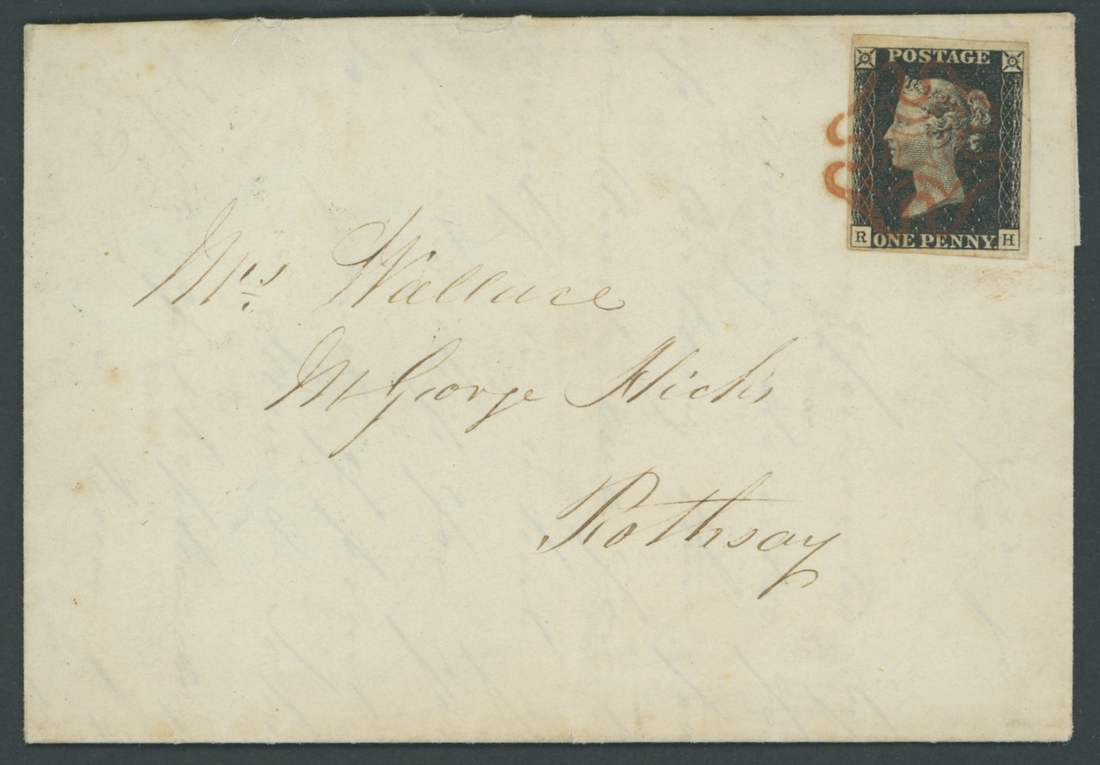 POSTAGE
R ONE PENNY. H
Mrs Wallace
Mr George Hicks
Rothsay